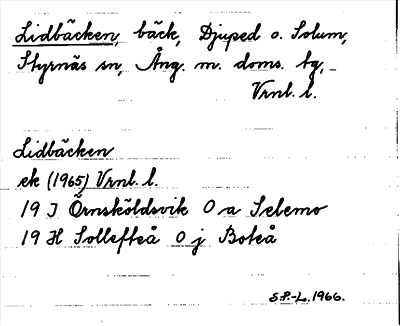 Lidbäcken, bäck, Djuped o. Solum,
Styrnäs sn, Ång. m. doms. tg,
Vrnl. l.
Lidbäcken
ek (1965) Vrnl. l.
19 J Örnsköldsvik 0 a Sebemo
19 H Sollefteå 0 j Boteå
S.P.-L. 1966.